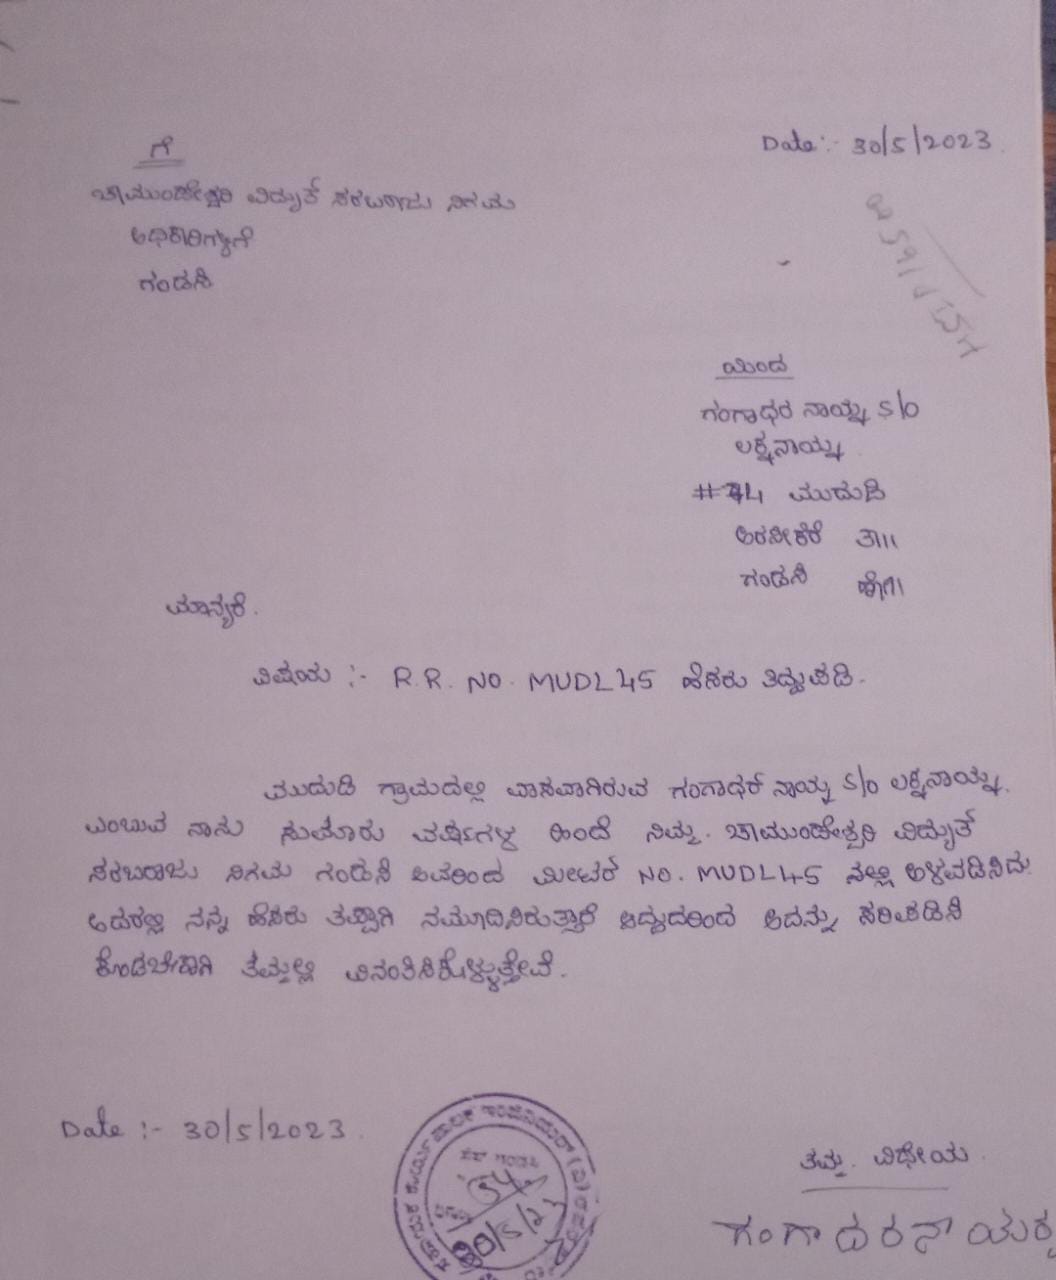 ಗೆ
Date :- 30/5/2023
ಚಾಮುಂಡೇಶ್ವರಿ ವಿದ್ಯುತ್ ಸರಬರಾಜು ನಿಗಮ
ಅಧಿಕಾರಿಗಳಿಗೆ
ಗಂಡಸಿ
ಯಿಂದ
ಗಂಗಾಧರ ನಾಯ್ಕ S/o
ಲಕ್ಕನಾಯ್ಕ
ಮುದುಡಿ
ಅರಸೀಕೆರೆ ತಾ॥
ಗಂಡಸಿ ಹೋ॥
ಮಾನ್ಯರೆ.
ವಿಷಯ :- R.R. NO. MUDL45 ಹೆಸರು ತಿದ್ದುಪಡಿ.
ಮುದುಡಿ ಗ್ರಾಮದಲ್ಲಿ ವಾಸವಾಗಿರುವ ಗಂಗಾಧರ್ ನಾಯ್ಕ S/o ಲಕ್ಕನಾಯ್ಕ.
ಎಂಬುವ ನಾನು ಸುಮಾರು ವರ್ಷಗಳ ಹಿಂದೆ ನಿಮ್ಮ. ಚಾಮುಂಡೇಶ್ವರಿ ವಿದ್ಯುತ್
ಸರಬರಾಜು ನಿಗಮ ಗಂಡಸಿ ಅವರಿಂದ ಮೀಟರ್ NO. MUDL45 ನಲ್ಲಿ ಅಳವಡಿಸಿದು
ಅದರಲ್ಲಿ ನನ್ನ ಹೆಸರು ತಪ್ಪಾಗಿ ನಮೂದಿಸಿರುತ್ತಾರೆ ಆದ್ದುದರಿಂದ ಅದನ್ನು ಸರಿಪಡಿಸಿ
ಕೊಡಬೇಕಾಗಿ ತಮ್ಮಲ್ಲಿ ವಿನಂತಿಸಿಕೊಳ್ಳುತ್ತೇವೆ.
Date :- 30/5/2023
ತಮ್ಮ. ವಿಧೇಯ
ಗಂಗಾಧರನಾಯಕ